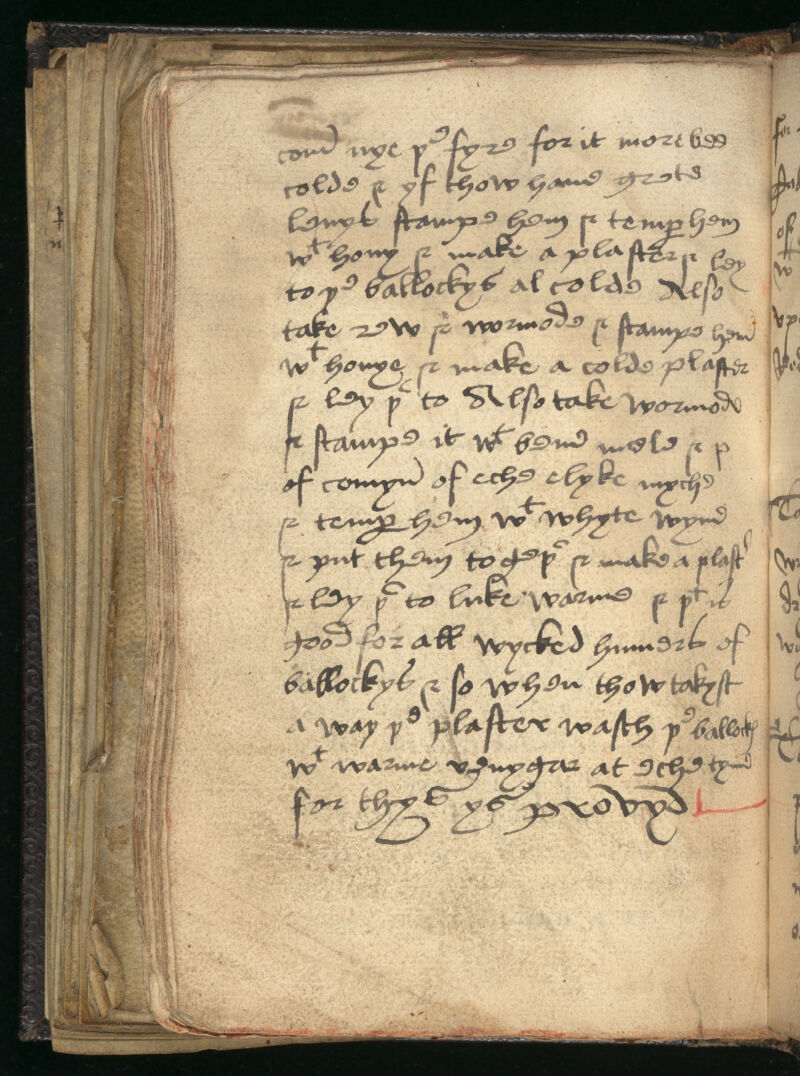 com nye þe fyre for it most be
colde & yf thow haue grete
stampe hem & temper hem
wt hony & make a plaster & ley
to þe ballockys al colde Also
take rew & wormode & stampe hem
wt honye & make a colde plaster
& ley þr to Also take wormode
& stampe it wt bene mele & þ
of comyn of eche elyke myche
& temper hem wt whyte wyne
& put them to geþr & make a plastr
& ley þr to luke warme & þt is
good for all wycked humers of
ballockys & so when thow takyst
a way þe plaster wasch þe ballockys
wt warme venygar at eche tyme
for thys ys provyd